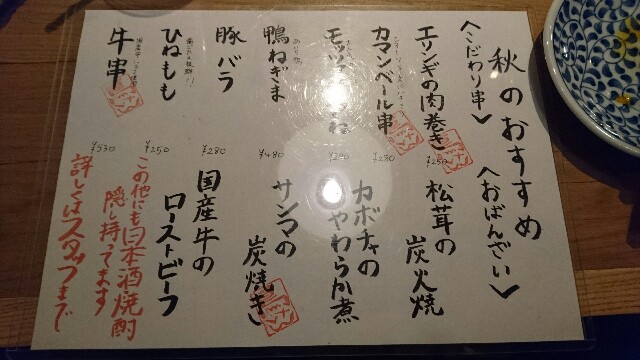 秋のおすすめ
〈こだわり串〉
エリンギの肉巻き
¥250
カマンベール串
¥280
鴨ねぎま
¥480
豚バラ
¥280
ひねもも
¥250
牛串
¥530
〈おばんざい〉
松茸の炭火焼
カボチャのやわらか煮
サンマの炭焼き
国産牛のローストビーフ
この他にも日本酒・焼酎
隠し持ってます
詳しくはスタッフまで